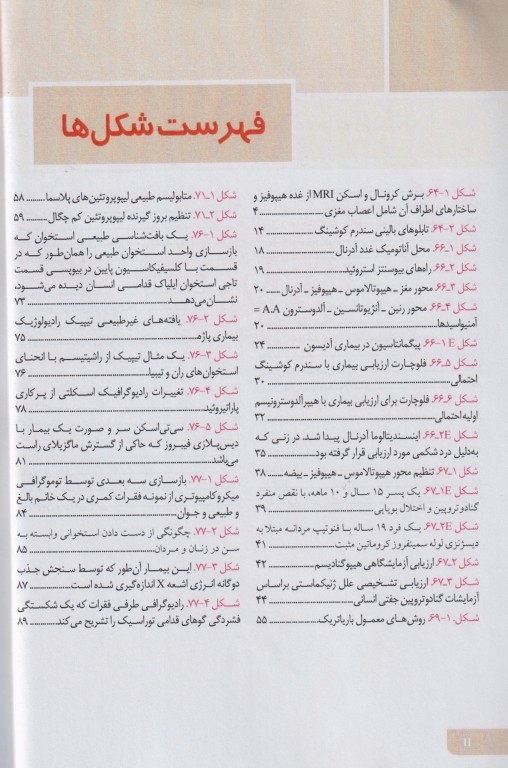 فهرست شکل‌ها
شکل ۱-۶۴. برش کرونال و اسکن MRI از غده هیپوفیز و
ساختارهای اطراف آن شامل اعصاب مغزی ۴
شکل ۲-۶۴. تابلوهای بالینی سندرم کوشینگ ۱۴
شکل ۱-۶۶. محل آناتومیک غدد آدرنال ۱۸
شکل ۲-۶۶. راه‌های بیوسنتز استروئید ۱۹
شکل ۳-۶۶. محور مغز - هیپوتالاموس - هیپوفیز - آدرنال ۲۰
شکل ۴-۶۶. محور رنین - آنژیوتانسین - آلدوسترون A.A =
آمینواسیدها ۲۰
شکل ۱E-۶۶. پیگمانتاسیون در بیماری آدیسون ۲۴
شکل ۵-۶۶. فلوچارت ارزیابی بیماری با سندرم کوشینگ
احتمالی ۳۰
شکل ۶-۶۶. فلوچارت برای ارزیابی بیماری با هیپرآلدوسترونیسم
اولیه احتمالی ۳۲
شکل ۲E-۶۶. اینسیدنتالوما آدرنال پیدا شد، در زنی که
به‌دلیل درد شکمی مورد ارزیابی قرار گرفته بود ۳۵
شکل ۱-۶۷. تنظیم محور هیپوتالاموس - هیپوفیز - بیضه ۳۸
شکل ۱E-۶۷. یک پسر ۱۵ سال و ۱۰ ماهه، با نقص منفرد
گنادوتروپین و اختلال بویایی ۳۹
شکل ۲E-۶۷. یک فرد ۱۹ ساله با فنوتیپ مردانه مبتلا به
دیسژنزی لوله سمینفروز کروماتین مثبت ۴۱
شکل ۲-۶۷. ارزیابی آزمایشگاهی هیپوگنادیسم ۴۲
شکل ۳-۶۷. ارزیابی تشخیصی علل ژنیکماستی براساس
آزمایشات گنادوتروپین جفتی انسانی ۴۴
شکل ۱-۶۹. روش‌های معمول باریاتریک ۵۵
شکل ۱-۷۱. متابولیسم طبیعی لیپوپروتئین‌های پلاسما ۵۸
شکل ۲-۷۱. تنظیم بروز گیرنده لیپوپروتئین کم چگال ۵۹
شکل ۱-۷۶. یک بافت‌شناسی طبیعی استخوان که
بازسازی واحد استخوان طبیعی را همان‌طور که در
قسمت با کلسیفیکاسیون پایین در بیوپسی قسمت
تاجی استخوان ایلیاک قدامی انسان دیده می‌شود،
نشان می‌دهد ۷۳
شکل ۲-۷۶. یافته‌های غیرطبیعی تیپیک رادیولوژیک
بیماری پاژه ۷۵
شکل ۳-۷۶. یک مثال تیپیک از راشیتیسم با انحنای
استخوان‌های ران و تیبیا ۷۶
شکل ۴-۷۶. تغییرات رادیوگرافیک اسکلتی از پرکاری
پاراتیروئید ۷۸
شکل ۵-۷۶. سی‌تی‌اسکن سر و صورت یک بیمار با
دیس‌پلازی فیبروز که حاکی از گسترش ماگزیلای راست
می‌باشد ۸۱
شکل ۱-۷۷. بازسازی سه بعدی توسط توموگرافی
میکروکامپیوتری از نمونه فقرات کمری در یک خانم بالغ
و طبیعی و جوان ۸۴
شکل ۲-۷۷. چگونگی از دست دادن استخوانی وابسته به
سن در زنان و مردان ۸۵
شکل ۳-۷۷. این بیمار آن‌طور که توسط سنجش جذب
دوگانه انرژی اشعه X اندازه‌گیری شده است ۸۷
شکل ۴-۷۷. رادیوگرافی طرفی فقرات که یک شکستگی
فشردگی گوه‌ای قدامی توراسیک را تشریح می‌کند ۸۹
۱۱